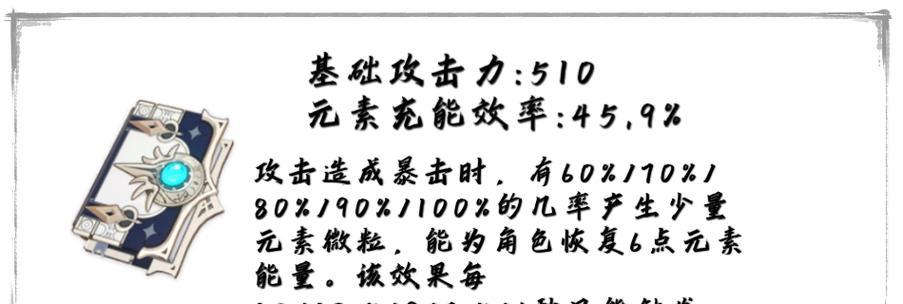 基础攻击力:510
元素充能效率:45.9%
攻击造成暴击时，有60%/70%/
80%/90%/100%的几率产生少量
元素微粒，能为角色恢复6点元素
能量。该效果每